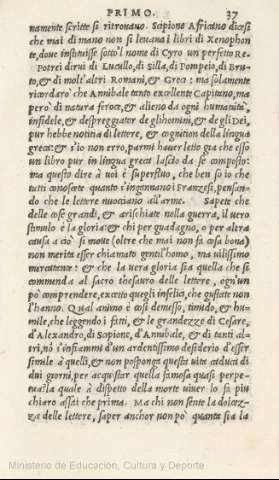 PRIMO. 37
namente scritte si ritrouano. Scipione Africano dicesi
che mai di mano non si leuaua i libri di Xenophon
te, doue instituisce sotto'l nome di Cyro un perfetto Re.
Potrei dirui di Lucullo, di Silla, di Pompeio, di Bru-
to, & di molt'altri Romani, & Greci: ma solamente
ricordarò che Annibale tanto eccellente Capitano, ma
però di natura feroce, & alieno da ogni humanità,
infidele, & despreggiator de gli homini, & de gli Dei,
pur hebbe notitia di lettere, & cognition della lingua
greca: & s'io non erro, parmi hauer letto gia che esso
un libro pur in lingua greca lasciò da se composto:
ma questo dire à uoi è superfluo, che ben so io che
tutti conoscete quanto s'ingannano i Franzesi, pensan-
do che le lettere nuocciano all'arme. Sapete che
delle cose grandi, & arischiate nella guerra, il uero
stimulo è la gloria: & chi per guadagno, o per altra
causa a ciò si moue (oltre che mai non fa cosa bona)
non merita esser chiamato gentil'homo, ma uilissimo
mercatante: & che la uera gloria sia quella che si
commenda al sacro thesauro delle lettere, ogn'un
po comprendere, eccetto quegli infelici, che gustate non
l'hanno. Qual animo è così demesso, timido, & hu-
mile, che leggendo i fatti, & le grandezze di Cesare,
d'Alexandro, di Scipione, d'Annibale, & di tanti al-
tri, nò s'infiammi d'un ardentissimo desiderio d'esser
simile à quelli, & non posponga questa uita caduca di
dui giorni, per acquistar quella famosa quasi perpe-
tua? la quale à dispetto della morte uiuer lo fa piu
chiaro assai che prima. Ma chi non sente la dolcez-
za delle lettere, saper anchor non pò quanta sia la
Ministerio de Educación, Cultura y Deporte